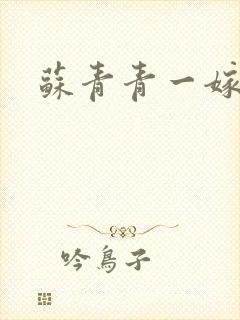 蘇青青一嫁
吟鳥子